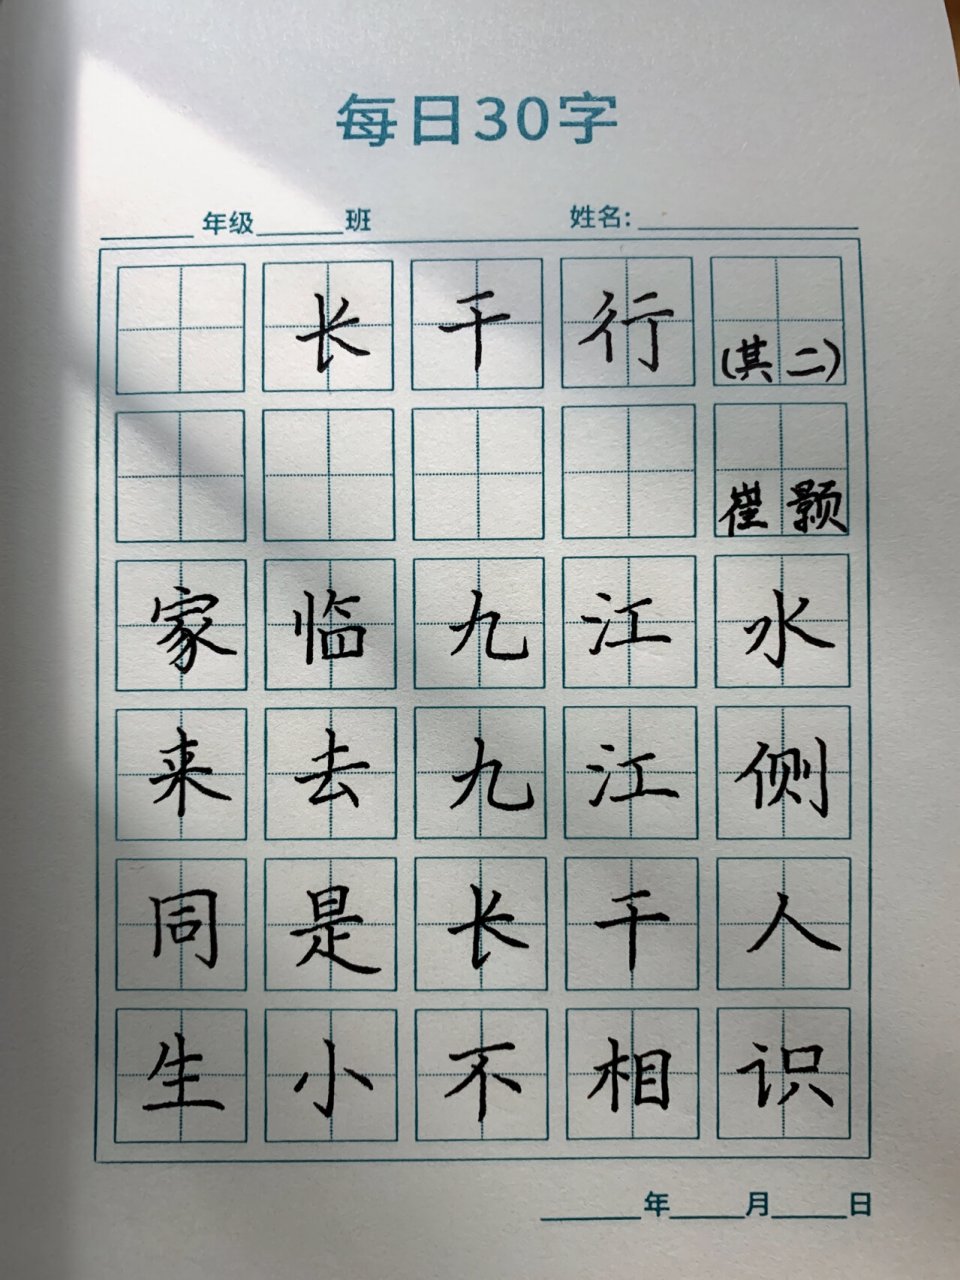 每日30字
年级 班 姓名:
长干行(其二)
崔颢
家临九江水
来去九江侧
同是长干人
生小不相识
年 月 日